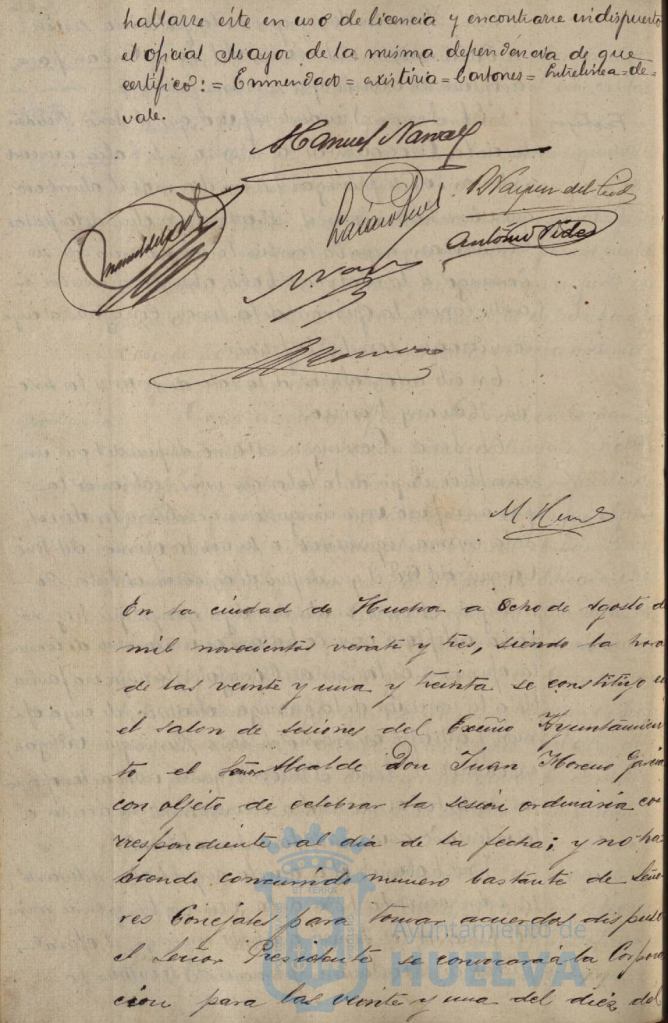 hallarse este en uso de licencia y encontrarse indispuesto
el oficial Mayor de la misma dependencia de que
certifico: = Enmendado = existiria = Cartones = Entrelinea = de =
vale.
Manuel
Antonio Vides
M.
En la ciudad de Huelva a Ocho de Agosto d
mil novecientos veinte y tres, siendo la hora
de las veinte y una y treinta se constituyo e
el salon de sesiones del Excmo Ayuntamien
to el Señor Alcalde Don Juan Moreno Garcia
con objeto de celebrar la sesión ordinaria co
rrespondiente al dia de la fecha; y no ha
biendo concurrido numero bastante de Seño
res Concejales para tomar acuerdos dispuso
el Señor Presidente se convocará a la Corpora
cion para las veinte y una del diez del
Ayuntamiento de
HUELVA